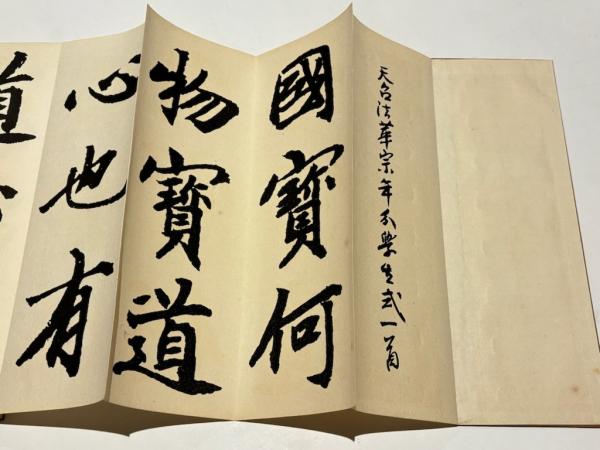 天台法華宗年分學生式一首
國寶何
物寶道
心也有
道